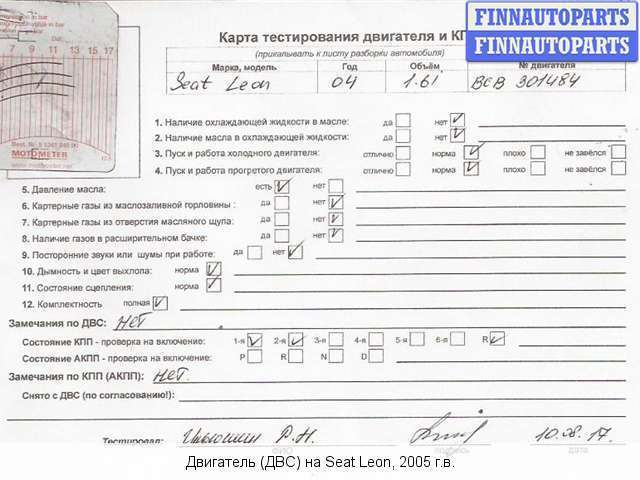 FINNAUTOPARTS
FINNAUTOPARTS
7 9 11 13 15 17
MOTOMETER
Карта тестирования двигателя и КП
(прикалывать к листу разборки автомобиля)
Марка, модель Год Объём № двигателя
Seat Leon 04 1.6i BCB 301484
1. Наличие охлаждающей жидкости в масле: да нет
2. Наличие масла в охлаждающей жидкости: да нет
3. Пуск и работа холодного двигателя: отлично норма плохо не завёлся
4. Пуск и работа прогретого двигателя: отлично норма плохо не завёлся
5. Давление масла: есть нет
6. Картерные газы из маслозаливной горловины : да нет
7. Картерные газы из отверстия масляного щупа: да нет
8. Наличие газов в расширительном бачке: да нет
9. Посторонние звуки или шумы при работе: да нет
10. Дымность и цвет выхлопа: норма
11. Состояние сцепления: норма
12. Комплектность полная
Замечания по ДВС: нет
Состояние КПП - проверка на включение: 1-я 2-я 3-я 4-я 5-я 6-я R
Состояние АКПП - проверка на включение: P R N D
Замечания по КПП (АКПП): нет.
Снято с ДВС (по согласованию!):
Тестировал: Р.Н. 10.08.17
ФИО подпись дата
Двигатель (ДВС) на Seat Leon, 2005 г.в.